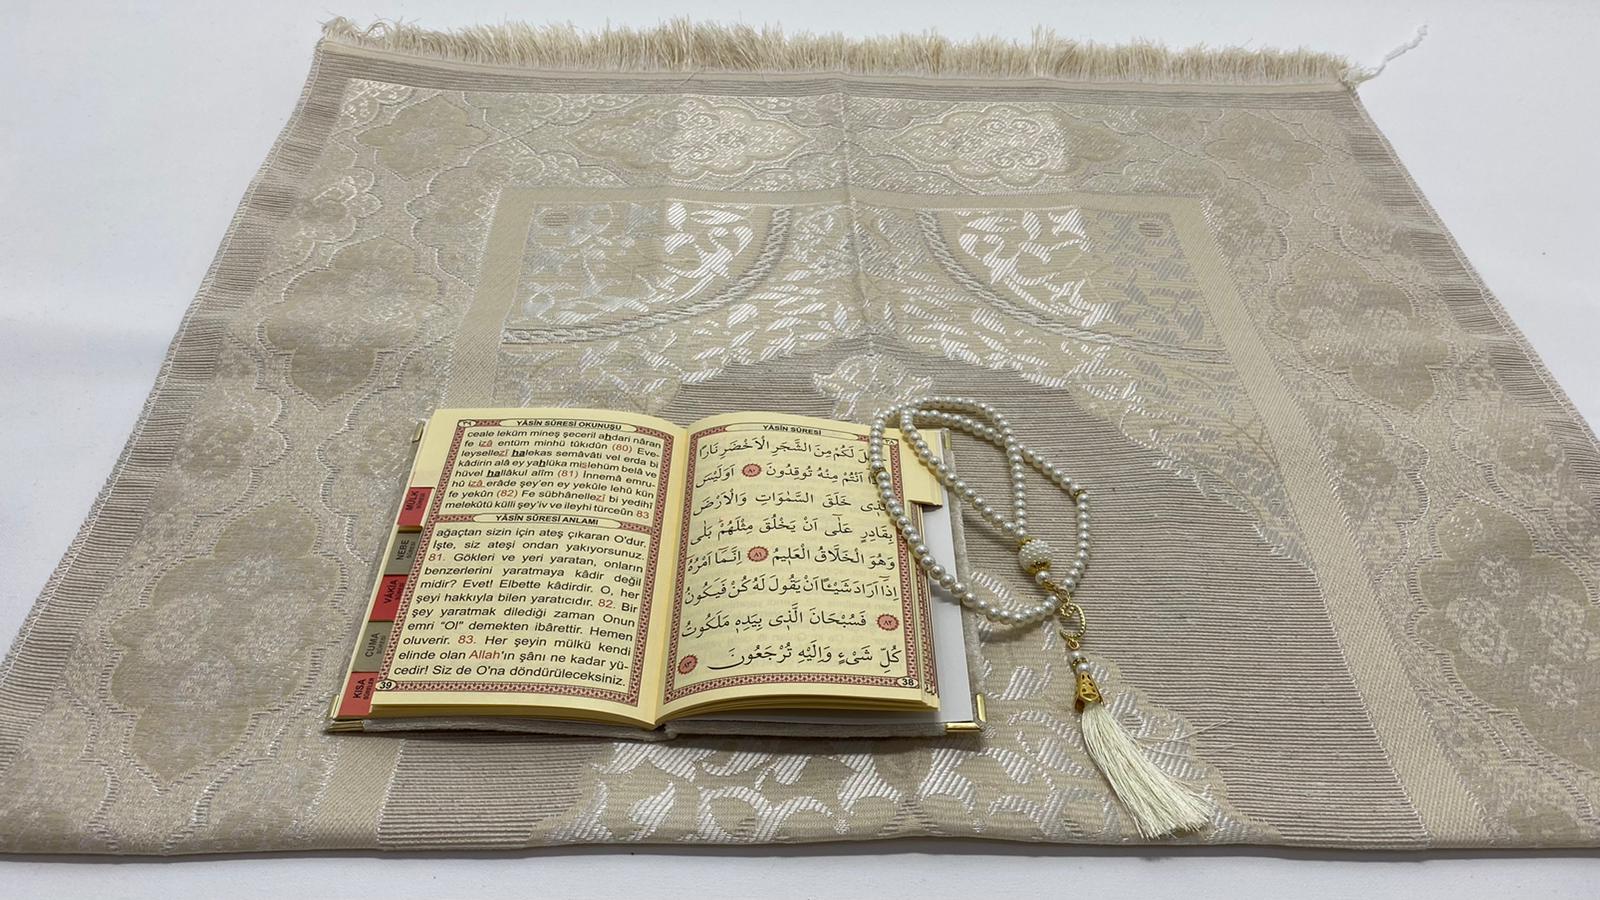 ٣٩
YÂSİN SÛRESİ OKUNUŞU
ceale leküm mineş şeceril ahdari nâran
fe izâ entüm minhü tûkıdûn (80) Eve-
leysellezî halekas semâvâti vel erda bi
kâdirin alâ ey yahlüka mislehüm belâ ve
hüvel hallâkul alîm (81) İnnemâ emru-
hû izâ erâde şey'en ey yeküle lehû kün
fe yekûn (82) Fe sübhânellezî bi yedihî
melekûtü külli şey'iv ve ileyhi türceûn 83
YÂSİN SÛRESİ ANLAMI
ağaçtan sizin için ateş çıkaran O'dur.
İşte, siz ateşi ondan yakıyorsunuz.
81. Gökleri ve yeri yaratan, onların
benzerlerini yaratmaya kâdir değil
midir? Evet! Elbette kâdirdir. O, her
şeyi hakkıyla bilen yaratıcıdır. 82. Bir
şey yaratmak dilediği zaman Onun
emri “Ol” demekten ibârettir. Hemen
oluverir. 83. Her şeyin mülkü kendi
elinde olan Allah'ın şânı ne kadar yü-
cedir! Siz de O'na döndürüleceksiniz.
39
MÜLK
SÛRESİ
NEBE
SÛRESİ
VÂKIA
SÛRESİ
CUMA
SÛRESİ
KISA
SÛRELER
YÂSİN SÛRESİ
٣٨
لَكُمْ مِنَ الشَّجَرِ الْاَخْضَرِ نَارًا
اَنْتُمْ مِنْهُ تُوقِدُونَ ٨٠ اَوَلَيْسَ
خَلَقَ السَّمٰوَاتِ وَالْاَرْضَ
بِقَادِرٍ عَلٰٓى اَنْ يَخْلُقَ مِثْلَهُمْ بَلٰى
وَهُوَ الْخَلَّاقُ الْعَلِيمُ ٨١ اِنَّمَٓا اَمْرُهُٓ
اِذَٓا اَرَادَ شَيْئًا اَنْ يَقُولَ لَهُ كُنْ فَيَكُونُ
٨٢ فَسُبْحَانَ الَّذِى بِيَدِهِ مَلَكُوتُ
كُلِّ شَىْءٍ وَاِلَيْهِ تُرْجَعُونَ ٨٣
38